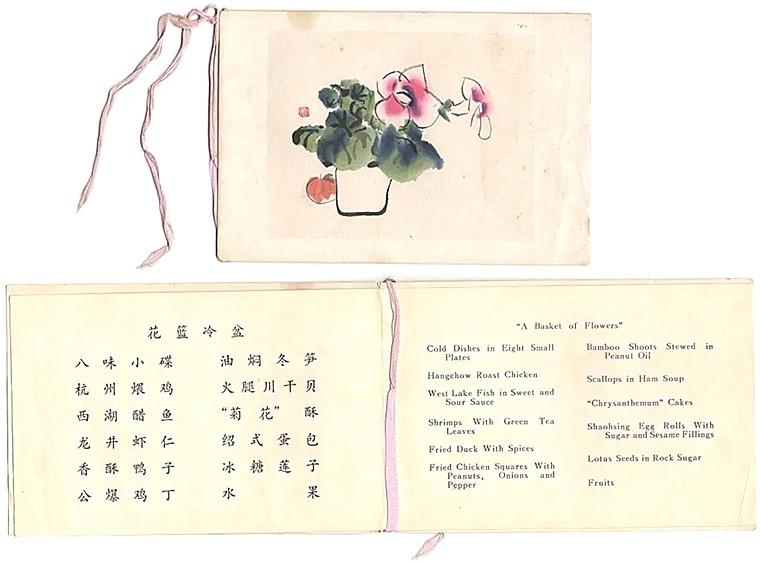 花篮冷盆
八味小碟
杭州煨鸡
西湖醋鱼
龙井虾仁
香酥鸭子
公爆鸡丁
油焖冬笋
火腿川干贝
“菊花”酥
绍式蛋包
冰糖莲子
水果
"A Basket of Flowers"
Cold Dishes in Eight Small
Plates
Hangchow Roast Chicken
West Lake Fish in Sweet and
Sour Sauce
Shrimps With Green Tea
Leaves
Fried Duck With Spices
Fried Chicken Squares With
Peanuts, Onions and
Pepper
Bamboo Shoots Stewed in
Peanut Oil
Scallops in Ham Soup
"Chrysanthemum" Cakes
Shaohsing Egg Rolls With
Sugar and Sesame Fillings
Lotus Seeds in Rock Sugar
Fruits